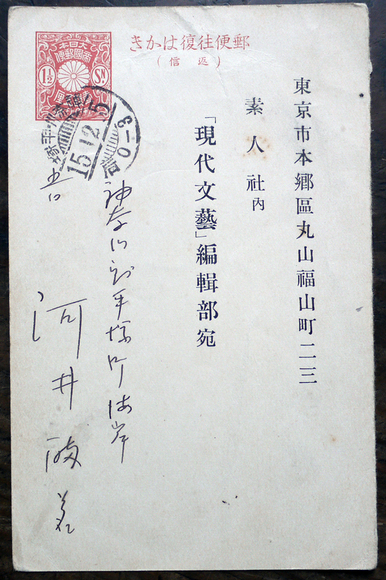 郵便往復はかき
(返信)
大日本
帝國郵便
1½ Sn
15.12.5
東京市本鄕區丸山福山町二三
素人社內
「現代文藝」編輯部宛
神奈川縣平塚町海岸
河井